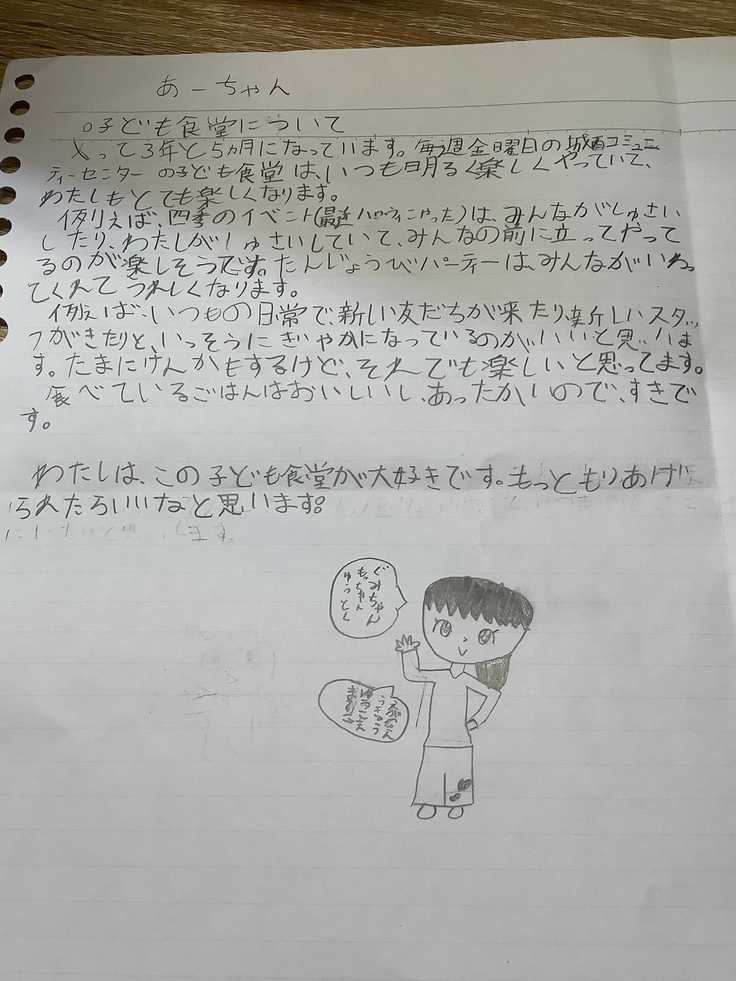 あーちゃん
○子ども食堂について
入って3年と5カ月になっています。毎週金曜日の城西コミュニ
ティーセンターの子ども食堂は、いつも明るく楽しくやっていて、
わたしもとても楽しくなります。
例えば、四季のイベント(最近ハロウィンやった)は、みんながしゅさい
したり、わたしがしゅさいしていて、みんなの前に立ってやって
るのが楽しそうです。たんじょうびパーティーは、みんながいわっ
てくれてうれしくなります。
例えば、いつもの日常で、新しい友だちが来たり、新しいスタッ
フがきたりと、いっそうにぎやかになっているのがいいと思いま
す。たまにけんかもするけど、それでも楽しいと思ってます。
食べているごはんはおいしいし、あったかいので、すきで
す。
わたしは、この子ども食堂が大好きです。もっともりあげ
られたらいいなと思います。
ぐみちゃん
もっちゃん
ゆっとく